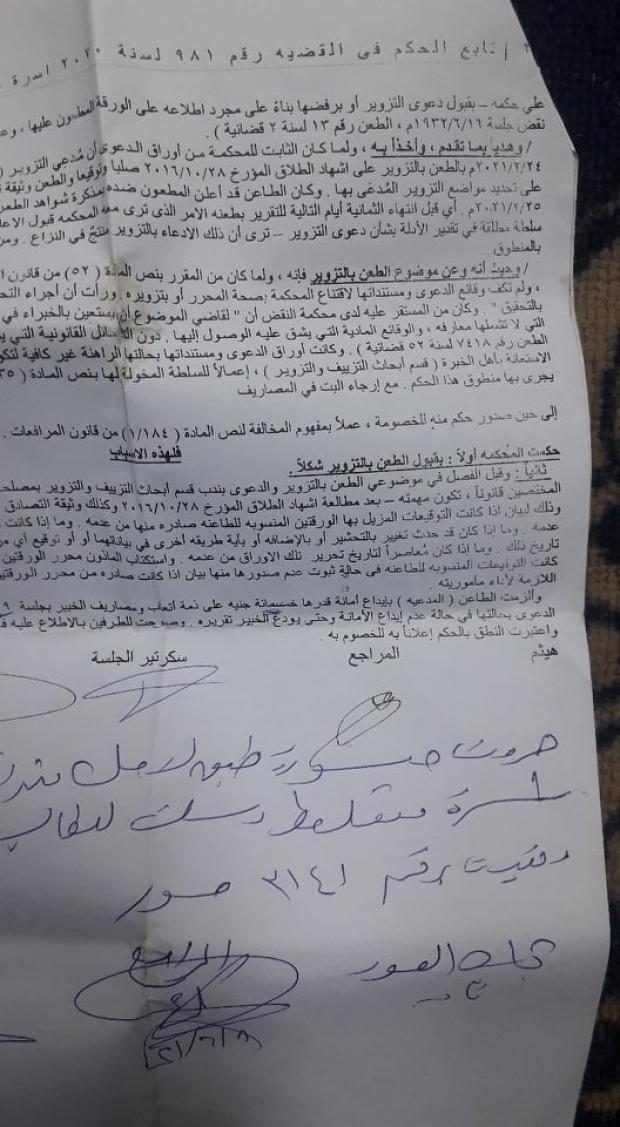 تابع الحكم فى القضيه رقم ٩٨١ لسنة ٢٠٢٠ اسرة
على حكمه – بقبول دعوى التزوير أو برفضها بناءً على مجرد اطلاعه على الورقة المطعون عليها ،
نقض جلسة ١٩٣٢/٦/١٦م ، الطعن رقم ١٣ لسنة ٢ قضائية ) .
/ وهدياً بما تقدم ، وأخذاً به ، ولما كان الثابت للمحكمة من أوراق الدعوى أن مُدعي التزوير (
٢٠٢١/٢/٢٤م بالطعن بالتزوير على اشهاد الطلاق المؤرخ ٢٠١٦/١٠/٢٨ صلباً وتوقيعاً والطعن وثيقة
على تحديد مواضع التزوير المُدعَى بها . وكان الطاعن قد أعلن المطعون ضده بمذكرة شواهد الطعن
٢٠٢١/٢/٢٥م . أي قبل انتهاء الثمانية أيام التالية للتقرير بطعنه الامر الذى ترى معه المحكمه قبول
سلطة مطلقة في تقدير الأدلة بشأن دعوى التزوير – ترى أن ذلك الادعاء بالتزوير منتجٌ في النزاع . ومن
بالمنطوق .
/ وحيث أنه وعن موضوع الطعن بالتزوير فإنه ، ولما كان من المقرر بنص المادة ( ٥٢ ) من قانون
، ولم تكف وقائع الدعوى ومستنداتها لاقتناع المحكمة بصحة المحرر أو بتزويره . ورأت أن أجراء
بالتحقيق " . وكان من المستقر عليه لدى محكمة النقض أن " لقاضي الموضوع أن يستعين بالخبراء في
التي لا تشملها معارفه ، والوقائع المادية التي يشق عليه الوصول إليها . دون المسائل القانونية التي
الطعن رقم ٧٤١٨ لسنة ٥٢ قضائية ) . وكانت أوراق الدعوى ومستنداتها بحالتها الراهنة غير كافية
الاستعانة بأهل الخبرة ( قسم أبحاث التزييف والتزوير ) ، إعمالاً للسلطة المخولة لها بنص المادة (
يجرى بها منطوق هذا الحكم . مع إرجاء البت في المصاريف
إلى حين صدور حكم منهٍ للخصومة ، عملاً بمفهوم المخالفة لنص المادة ( ١/١٨٤ ) من قانون المرافعات .
فلهذه الاسباب
حكمت المُحكمه أولاً : بقبول الطعن بالتزوير شكلاً .
ثانياً : وقبل الفصل في موضوعي الطعن بالتزوير والدعوى بندب قسم أبحاث التزييف والتزوير
المختصين قانوناً ، تكون مهمته – بعد مطالعة اشهاد الطلاق المؤرخ ٢٠١٦/١٠/٢٨ وكذلك وثيقة التصادق
وذلك لبيان اذا كانت التوقيعات المزيل بها الورقتين المنسوبه للطاعنه صادره منها من عدمه . وما إذا كانت
عدمه . وما إذا كان قد حدث تغيير بالتحشير أو بالإضافه أو باية طريقه أخرى في بياناتهما أو أو توقيع أي
تاريخ ذلك . وما إذا كان مُعاصراً لتاريخ تحرير تلك الاوراق من عدمه . واستكتاب المأذون محرر الورقتين
كانت التوقيعات المنسوبه للطاعنه في حالة ثبوت عدم صدورها منها بيان اذا كانت صادره من محرر الورقتين
اللازمة لأداء مأموريته .
وألزمت الطاعن ( المدعيه ) بإيداع أمانة قدرها خمسمائة جنيه على ذمة اتعاب ومصاريف الخبير بجلسة ٩
الدعوى بحالتها في حالة عدم إيداع الأمانة وحتى يودع الخبير تقريره . وصرحت للطرفين بالاطلاع عليه
واعتبرت النطق بالحكم إعلاناً به للخصوم به .
هيثم المراجع سكرتير الجلسة
صورة طبق لاصل
اسرة
برقم ٣١٤١ صور
الصور